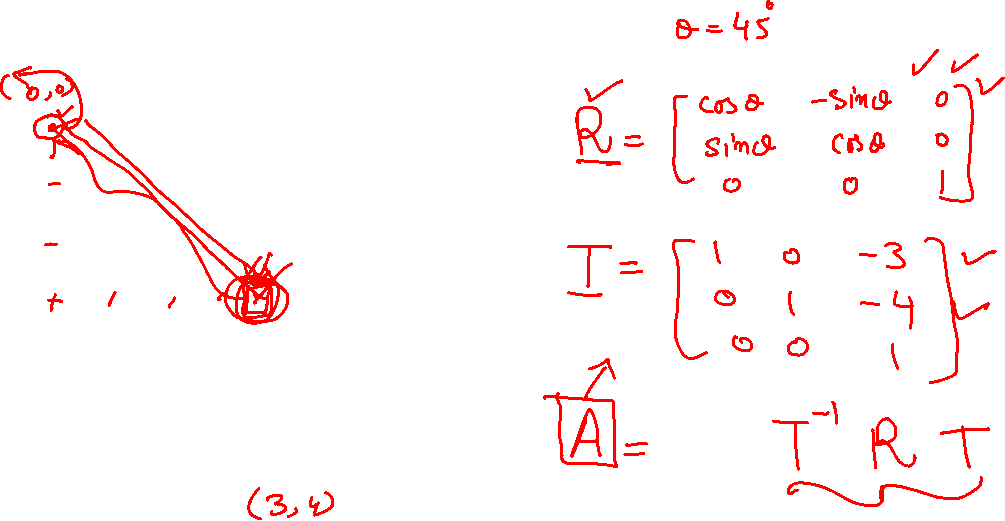 θ = 45°
(0,0)
R = [ cosθ -sinθ 0
sinθ cosθ 0
0 0 1 ]
T = [ 1 0 -3
0 1 -4
0 0 1 ]
A = T⁻¹ R T
(3,4)